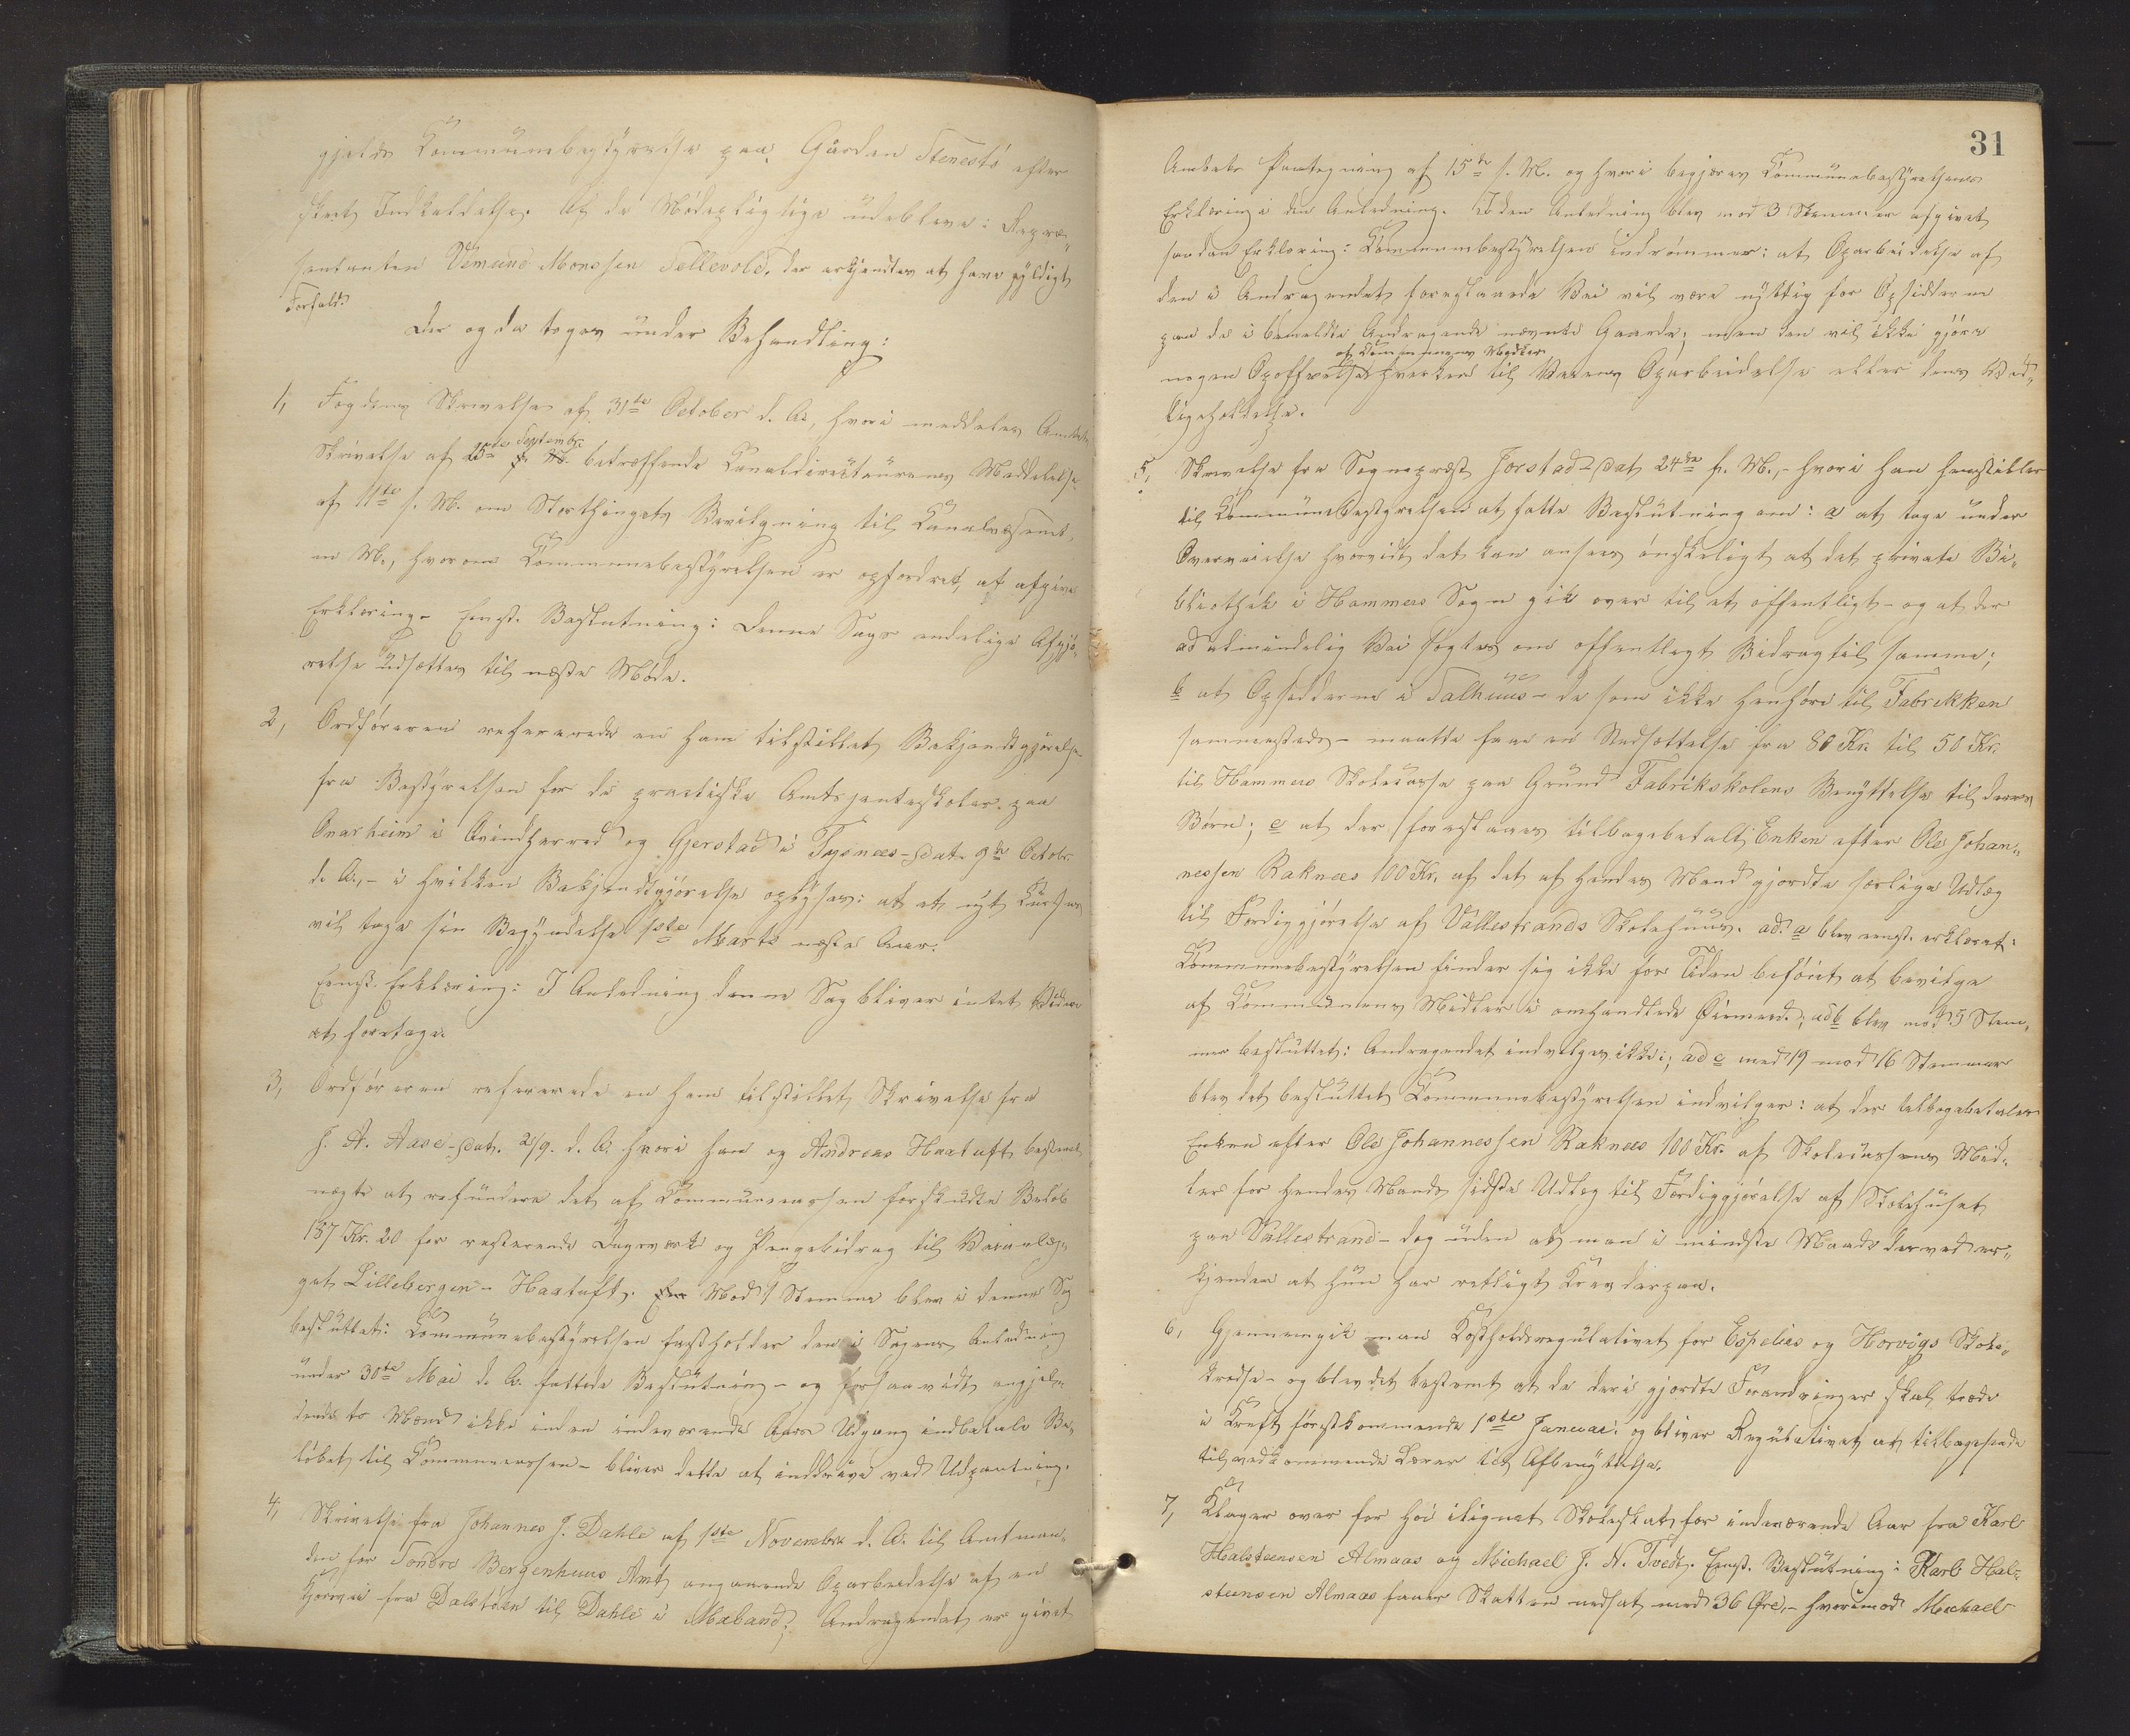 gjelds Kommunebestyrelse paa Gaarden Stenestö efter
skeet Indkaldelse. Af de Mödepligtige udebleve: Repræ-
sentanten Vemund Monssen Tellevold, der erkjendtes at have gyldigt
Forfald.
Der og da toges under Behandling:
1, Fogdens Skrivelse af 31te October d. A., hvori meddeles Amtets
Skrivelse af 25de Septembr. betræffende Kanaldirecteurens Meddelelse
af 11te s. M. om Storthingets Bevilgning til Kanalvæsenet
m M., hvorom Kommunebestyrelsen er opfordret, at afgive
Erklæring. Eenst. Beslutning: Denne Sags endelige Afgjö-
relse udsættes til næste Möde.
2, Ordföreren refererede en ham tilstillet Bekjendtgjörelse
fra Bestyrelsen for de practiske Amtsjenteskoler paa
Onarheim i Qvindherred og Gjerstad i Tysnæs - dat. 9de Octobr.
d. A., - i hvilken Bekjendtgjörelse oplyses: at et nyt Kursus
vil tage sin Begyndelse 1ste Marts næste Aar.
Eenst. Erklæring: I Anledning denne Sag bliver intet Videre
at foretage.
3, Ordföreren refererede en ham tilstillet Skrivelse fra
J. A. Aase - dat. 2/9. d. A. hvori han og Andreas Haatuft bestemt
nægte at refundere det af Kommunecassen forskudte Belöb
187 Kr. 20 for resterende Dagsværk og Pengebidrag til Veianlæg-
get Lillebergen - Haatuft. Mod 1 Stemme blev i denne Sag
besluttet: Kommunebestyrelsen fastholder den i Sagens Anledning
under 30te Mai d. A. fattede Beslutning - og forsaavidt angjel-
dende to Mænd ikke inden indeværende Aars Udgang indbetale Be-
löbet til Kommunecassen - bliver dette at inddrive ved Udpantning.
4, Skrivelse fra Johannes J. Dahle af 1ste Novembr. d. A. til Amtman-
den for Söndre Bergenhuus Amt angaaende Oparbeidelse af en
Kjörevei fra Dalstöen til Dahle i Maband; Andragendet er givet
31
Amtets Paategning af 15de s. M. og hvori begjæres Kommunebestyrelsens
Erklæring i den Anledning. I den Anledning blev mod 3 Stemmer afgivet
saadan Erklæring: Kommunebestyrelsen indrömmer: at Oparbeidelse af
den i Andragendet foreslaaede Vei vil være nyttig for Opsidderne
paa de i bemeldte Andragende nævnte Gaarde; men den vil ikke gjöre
af Kommunens Midler
nogen Opoffrelse hverken til Veiens Oparbeidelse eller dens Ved-
ligeholdelse.
5, Skrivelse fra Sogneprest Jorstad - dat. 24de f. M., - hvori han henstiller
til Kommunebestyrelsen at fatte Beslutning om: a at tage under
Overveielse hvorvidt det kan ansees önskeligt at det private Bi-
bliothek i Hammers Sogn gik over til et offentligt - og at der
ad almindelig Vei sögtes om offentligt Bidrag til samme;
b at Opsidderne i Salhuus - de som ikke henhöre til Fabrikken
sammesteds - maatte faae en Nedsættelse fra 80 Kr. til 50 Kr.
til Hammers Skolecasse paa Grund Fabrikskolens Benyttelse til deres
Börn; c at der foreslaaes tilbagebetalt Enken efter Ole Johan-
nessen Raknæs 100 Kr. af det af hendes Mand gjordte særlige Udlæg
til Færdiggjörelse af Vallestrands Skolehuus. ad. a blev eenst. erklæret:
Kommunebestyrelsen finder sig ikke for Tiden beföiet at bevilge
af Kommunens Midler i omhandlede Öiemed.; ad b blev mod 5 Stem-
mer besluttet: Andragendet indvilges ikke; ad c med 19 mod 16 Stemmer
blev det besluttet Kommunebestyrelsen indvilger: at der tilbagebetales
Enken efter Ole Johannessen Raknæs 100 Kr. af Skolecassens Mid-
ler for hendes Mands sidste Udlæg til Færdiggjörelse af Skolehuset
paa Vallestrand - dog uden at man i mindste Maade derved er-
kjender at hun har retligt Krav derpaa.
6, Gjennemgik man Kostholdsregulativet for Espeliés og Horvigs Skole-
kredse - og blev det bestemt at de deri gjordte Forandringer skal træde
i Kraft förstkommende 1ste Januar. og bliver Regulativet at tilbagesende
til vedkommende Lærer til Afbenyttelse.
7, Klager over for höi ilignet Skoleskat for indeværende Aar fra Karl
Halsteensen Almaas og Michael J. N. Tvedt. Eenst. Beslutning: Karl Hal-
steensen Almaas faaer Skatten nedsat med 36 Öre, - hvorimod Michael